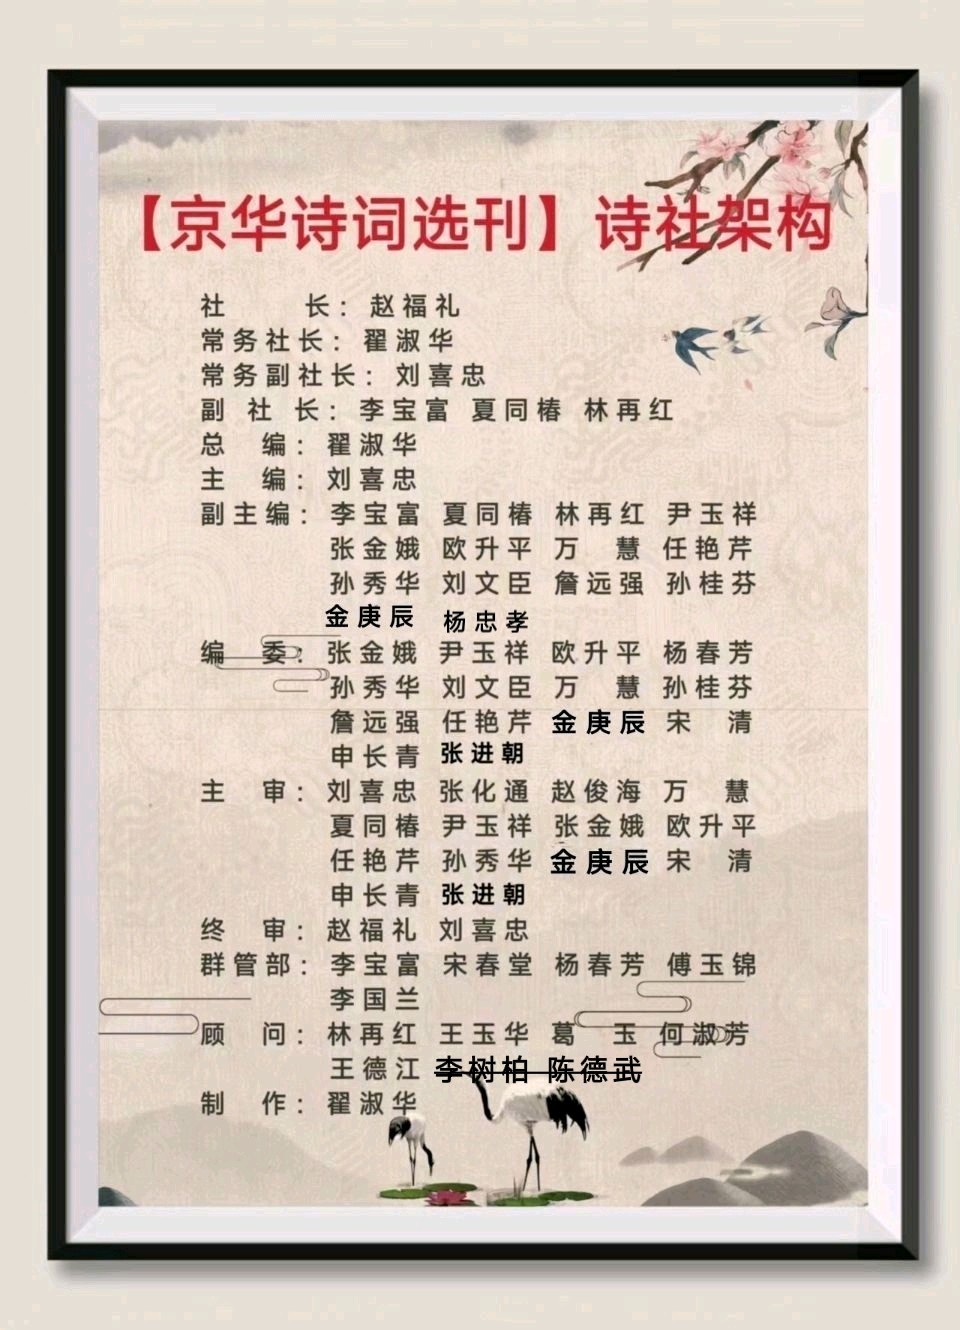 【京华诗词选刊】诗社架构
社 长：赵福礼
常务社长：翟淑华
常务副社长：刘喜忠
副社长：李宝富 夏同椿 林再红
总 编：翟淑华
主 编：刘喜忠
副主编：李宝富 夏同椿 林再红 尹玉祥
张金娥 欧升平 万 慧 任艳芹
孙秀华 刘文臣 詹远强 孙桂芬
金庚辰 杨忠孝
编 委：张金娥 尹玉祥 欧升平 杨春芳
孙秀华 刘文臣 万 慧 孙桂芬
詹远强 任艳芹 金庚辰 宋 清
申长青 张进朝
主 审：刘喜忠 张化通 赵俊海 万 慧
夏同椿 尹玉祥 张金娥 欧升平
任艳芹 孙秀华 金庚辰 宋 清
申长青 张进朝
终 审：赵福礼 刘喜忠
群管部：李宝富 宋春堂 杨春芳 傅玉锦
李国兰
顾 问：林再红 王玉华 葛 玉 何淑芳
王德江 李树柏 陈德武
制 作：翟淑华